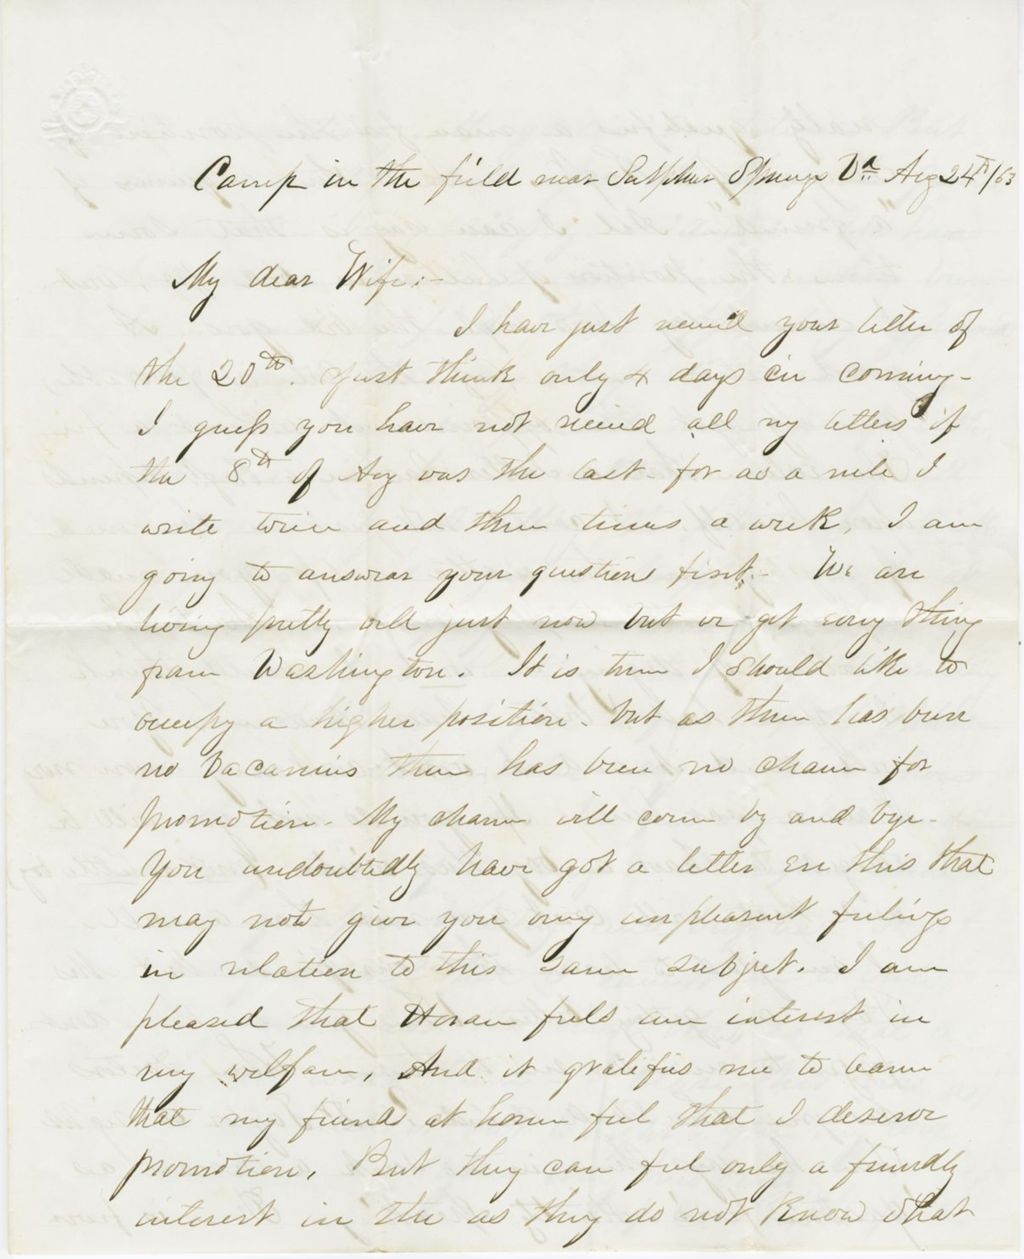 Camp in the field near Sulphur Springs Va Aug 24th/63
My dear Wife:-
I have just received your letter of
the 20th. Just think only 4 days in coming-
I guess you have not received all my letters if
the 8th of Aug was the last- for as a rule I
write twice and three times a week, I am
going to answear your questions first.- We are
living pretty well just now but we get every thing
from Washington. It is true I should like to
occupy a higher position. but as there has been
no vacancies there has been no chance for
promotion- My chance will come by and bye-
You undoubtedly have got a letter ere this that
may not give you any unpleasent feelings
in relation to this same subject. I am
pleased that Horace feels an interest in
my welfare, And it gratifies me to learn
that my friends at home feel that I deserve
promotion, But they can feel only a friendly
interest in the as they do not know what